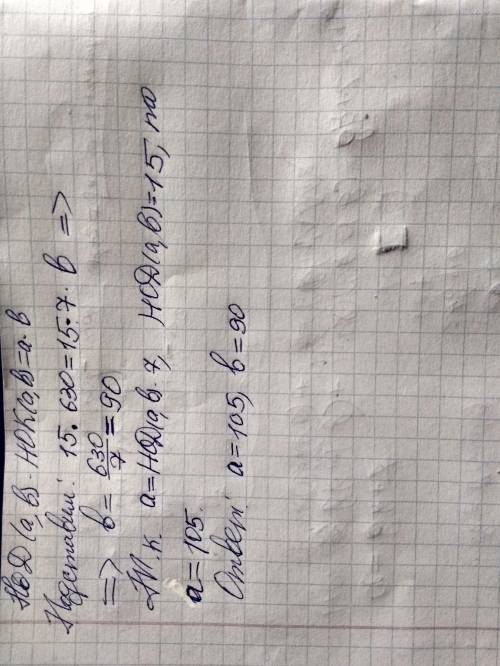 НОД(а,в)·НОК(а,в)=а·в
Подставим: 15·630=15·7·в =>
=> в = 630/7 = 90
Т.к. а=НОД(а,в)·7, НОД(а,в)=15, то
а=105.
Ответ: а=105, в=90